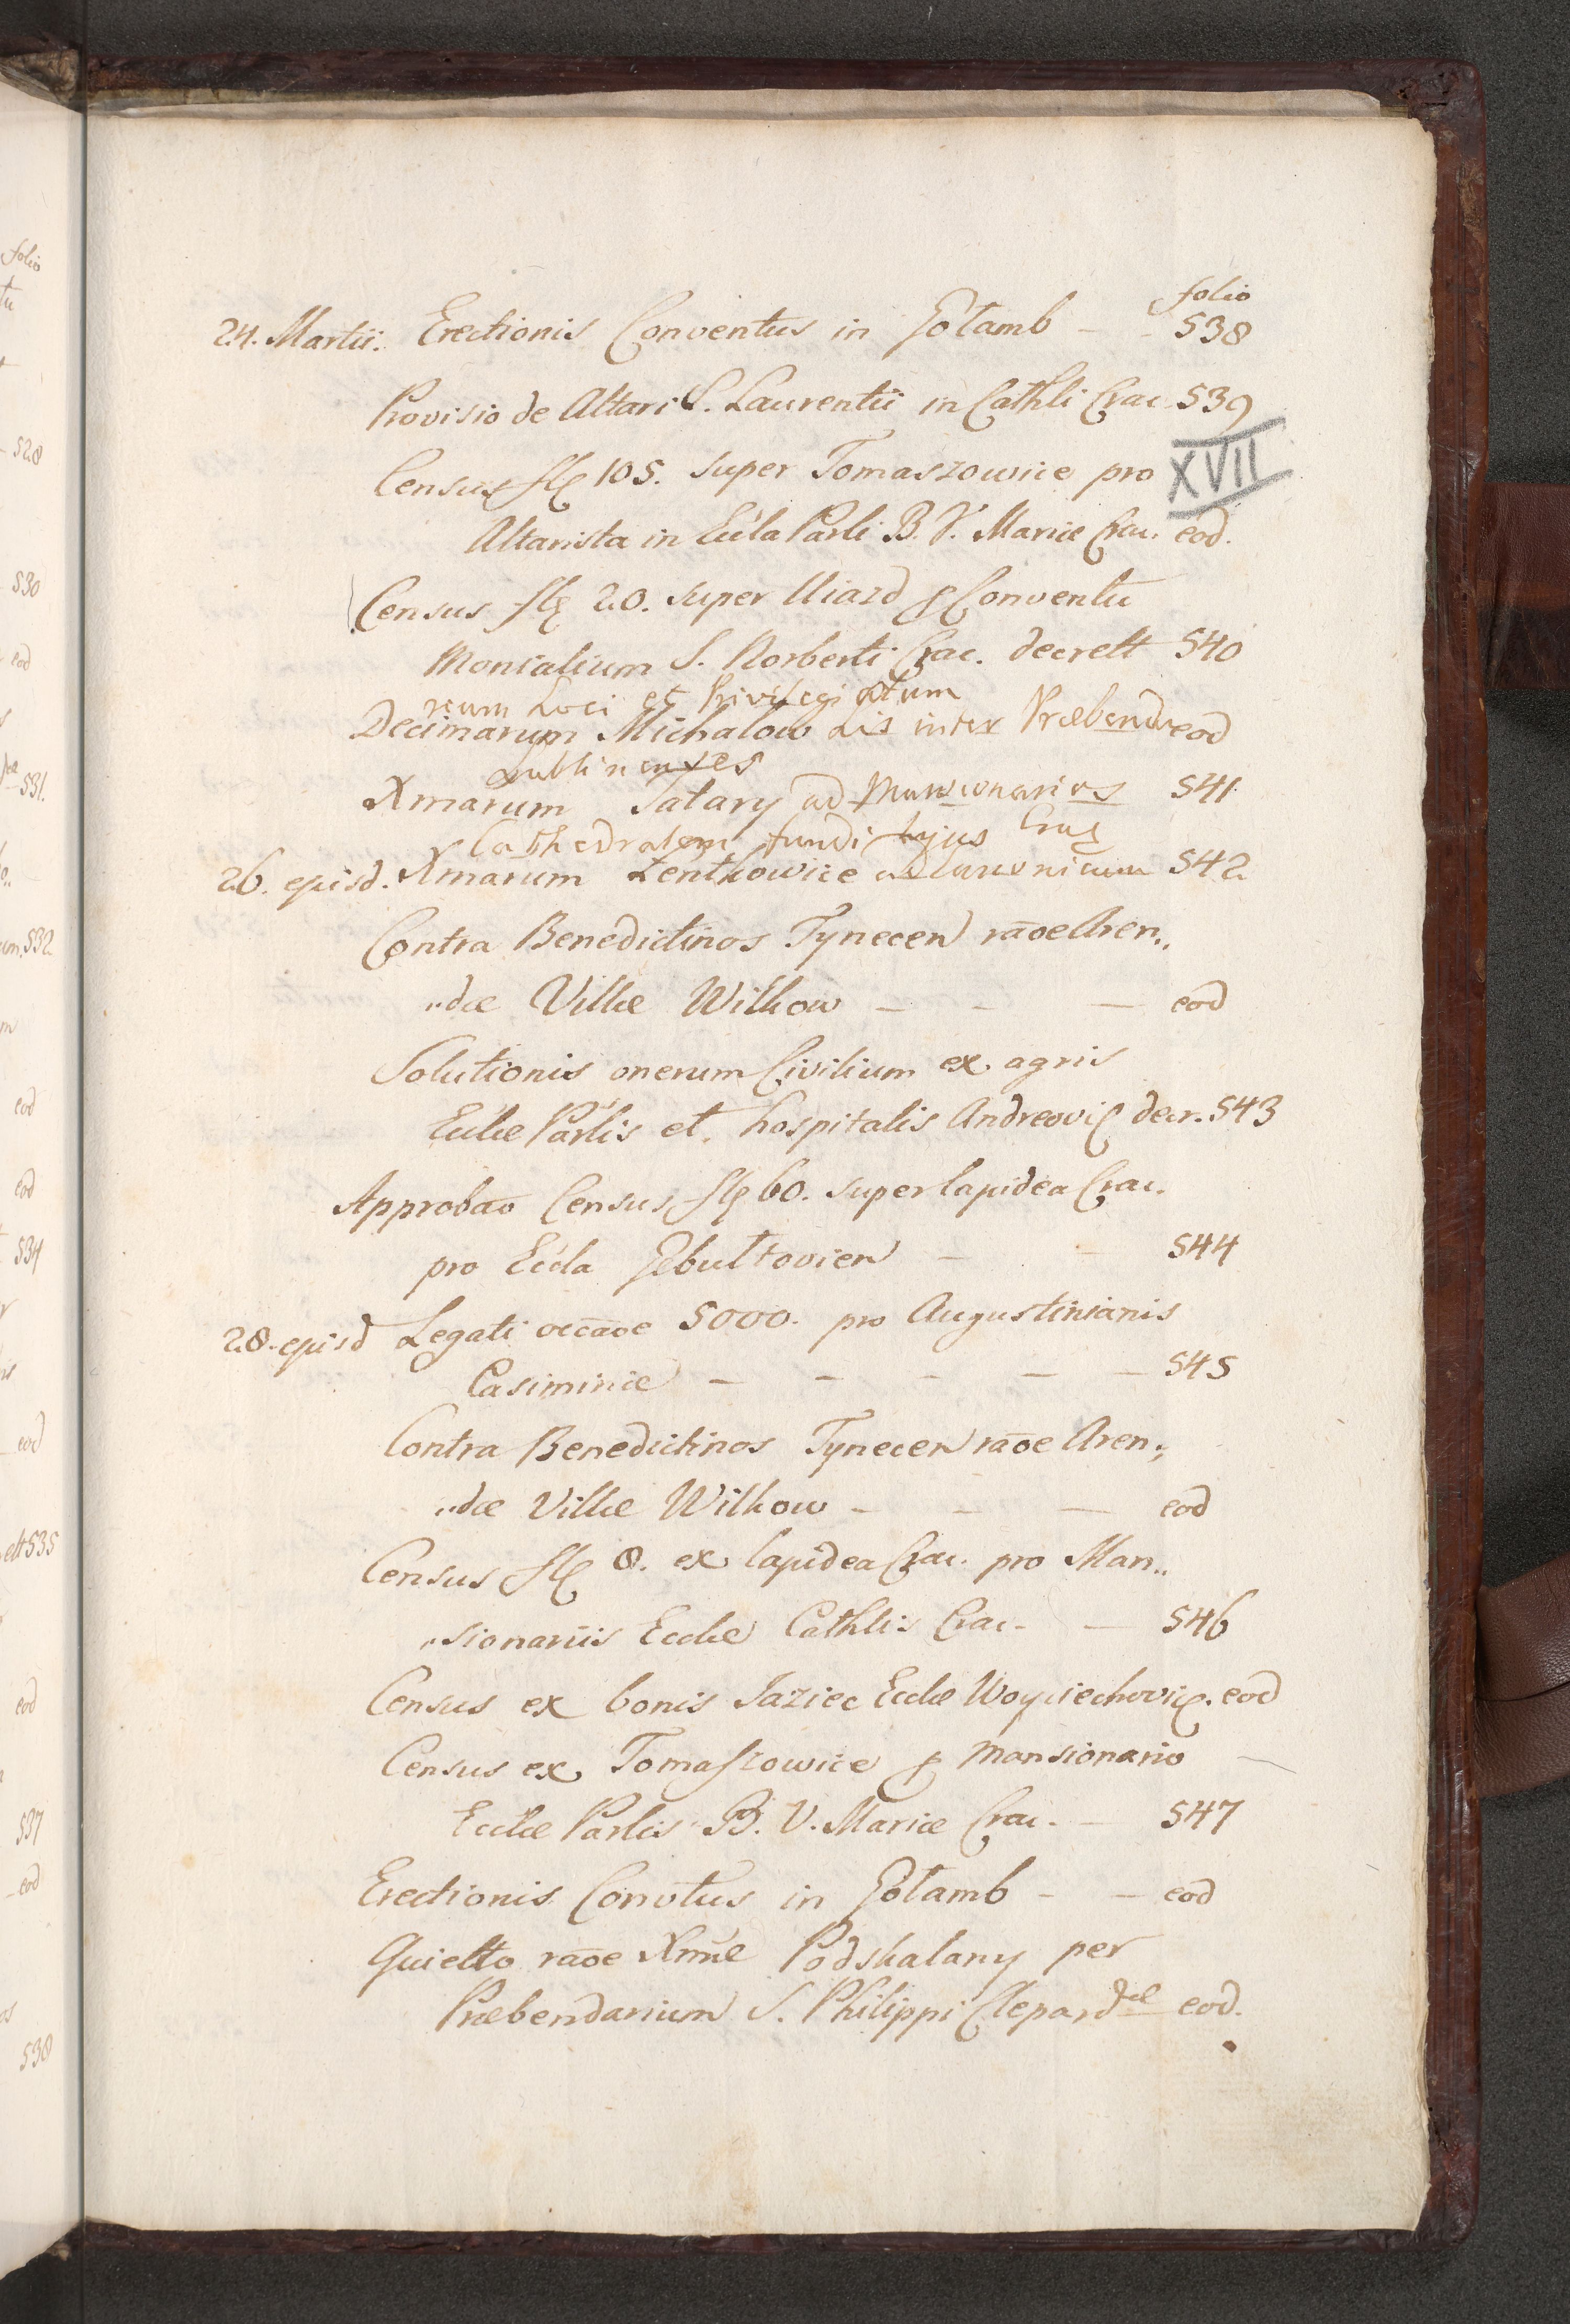 folio
24. Martii. Erectionis Conventus in Gołamb - - 538
Provisio de Altari S. Laurentii in Cathli Crac. 539
XVII
Census fl 105. super Tomaszowice pro
Altarista in Eccla Parli B. V. Mariæ Crac. eod.
Census fl 20. super Uiazd p Conventu
Monialium S. Norberti Crac. decrett 540
rium Loci et Privilegiatum
Decimarum Michałow Lis inter Præbenda eod
Lublinenses
Xmarum Tatary ad Mansionarios 541
Cathedralem fundi hujus
26. ejusd. Xmarum Zentkowice ad Canonicum 542
Contra Benedictinos Tynecen rãoe Aren„
„dæ Villæ Wilkow - - - eod
Solutionis onerum Civilium ex agris
Ecclæ Parlis et hospitalis Andreovi decr. 543
Approbao Census fl 60. super lapidea Crac.
pro Eccla Gebultovien - - 544
28. ejusd Legati occãoe 5000. pro Augustinianis
Casimiriæ - - - - - 545
Contra Benedictinos Tynecen rãoe Aren„
„dæ Villæ Wilkow - - - eod
Census fl 8. ex lapidea Crac. pro Man„
„sionariis Ecclæ Cathlis Crac. - 546
Census ex bonis Jaziec Ecclæ Woyciechovi. eod
Census ex Tomaszowice p Mansionario -
Ecclæ Parlis B. V. Mariæ Crac. - 547
Erectionis Convtus in Gołamb - - eod
Quietto rãoe Xmæ Podskalany per
Præbendarium S. Philippi Clepardiæ eod.